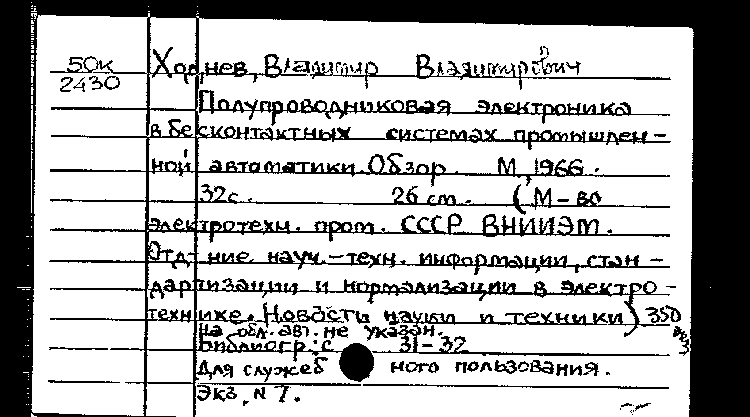 50к
2430
Ходнев, Владимир Владимирович
Полупроводниковая электроника
в бесконтактных системах промышлен-
ной автоматики. Обзор. М, 1966.
32с. 26 см. (М-во
электротехн. пром. СССР ВНИИЭМ.
Отд-ние науч.-техн. информации, стан-
дартизации и нормализации в электро-
технике. Новости науки и техники) 350
На обл. авт. не указан.
Библиогр.: с 31-32
Для служебного пользования.
Экз. N 7.